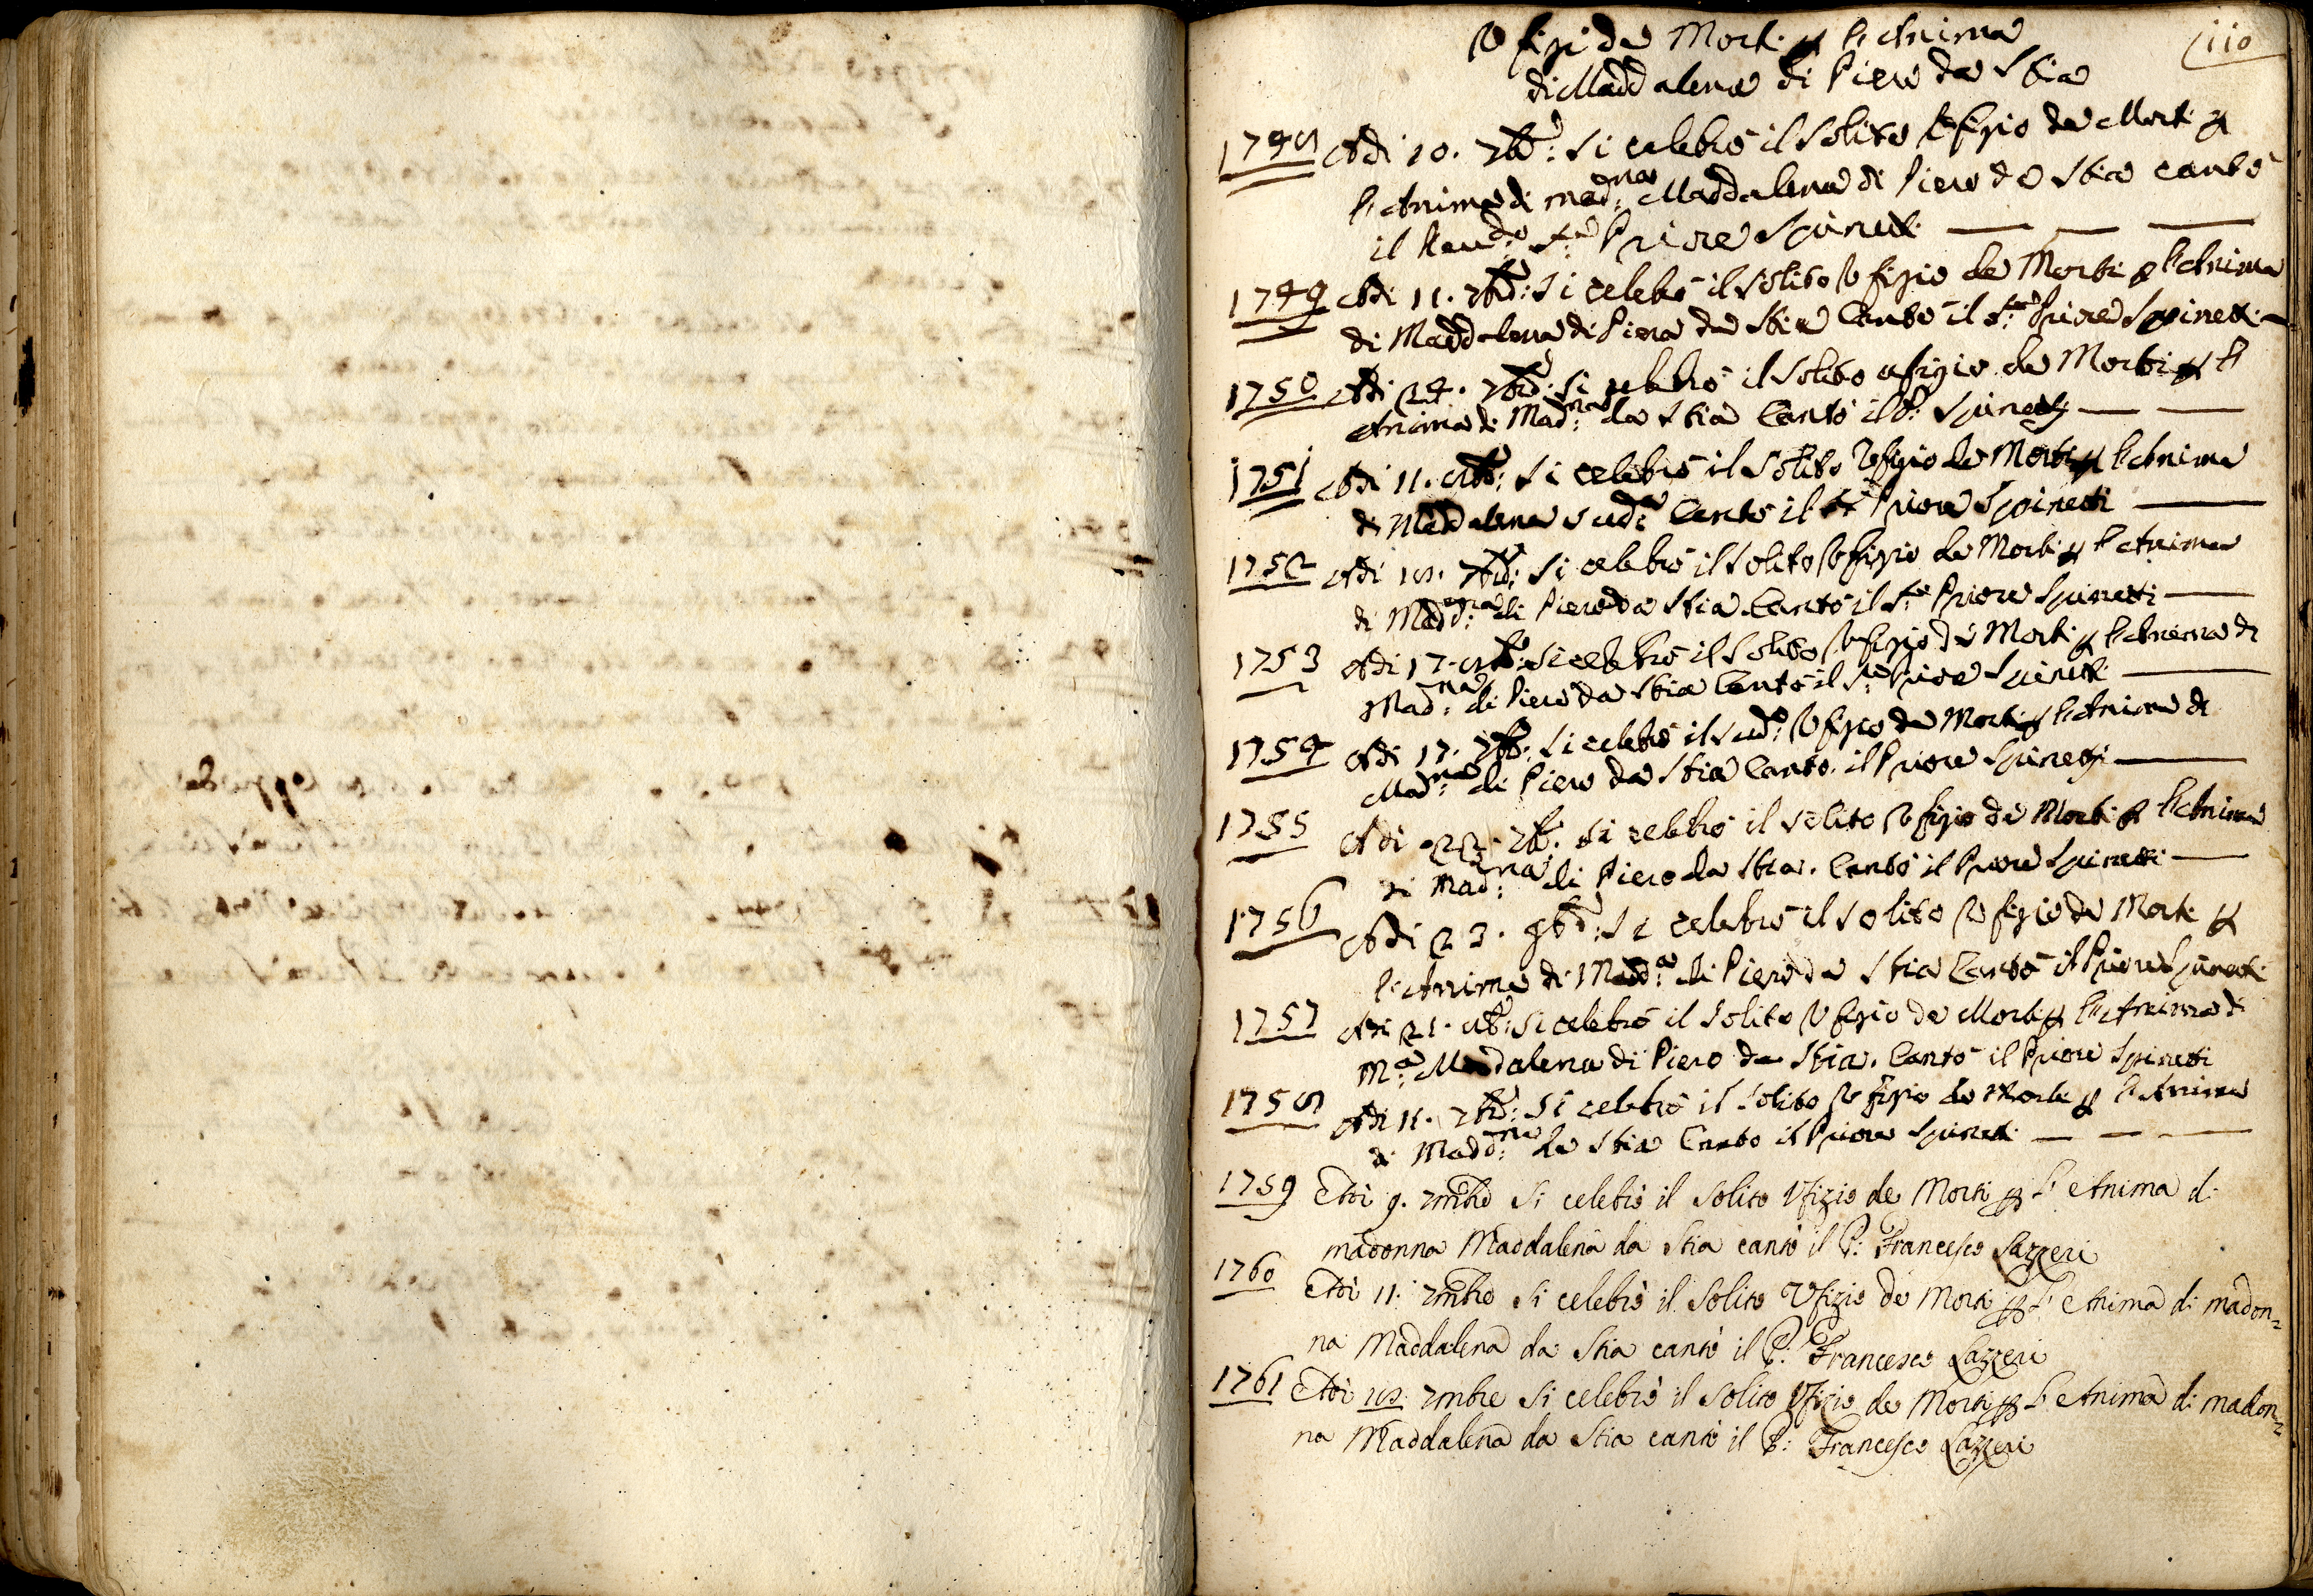 110
Ufizi de Morti p l'Anima
di Maddalena di Piero da Stia
1748 Adi 10. 7bre: si celebrò il solito Ufizio de Morti p
l'Anima di mad:na Maddalena di Piero da Stia cantò
il Reud:o Sr: Priore Spinetti
1749 Adi 11. 7bre: si celebrò il solito Ufizio de Morti p l'Anima
di Maddalena di Piero da Stia Cantò il Sr: Priore Spinetti
1750 Adi 24. 7bre: si celebrò il solito ufizio de Morti p l'
Anima di Mad:na da Stia Cantò il P: Spinetti
1751 Adi 11. 8bre: si celebrò il solito Ufizio de Morti p l'Anima
di Maddalena sud:a Cantò il Sr Priore Spinetti
1752 Adi 18. 7bre: si celebrò il solito Ufizio de Morti p l'Anima
di Madd:na di Piero da Stia Cantò il Sr: Priore Spinetti
1753 Adi 17. 8bre: si celebrò il solito Ufizio de Morti p l'Anima di
Mad:na di Piero da Stia Cantò il Sr: Priore Spinetti
1754 Adi 17. 7bre: si celebrò il sud:o Ufizio de Morti p l'Anima di
Mad:na di Piero da Stia Cantò il Priore Spinetti
1755 Adi 22. 7bre: si celebrò il solito Ufizio de Morti p l'Anima
di Mad:na di Piero da Stia. Cantò il Priore Spinetti
1756 Adi 23. 9bre: si celebrò il solito Ufizio de Morti p
l'Anima di Madd:a di Piero da Stia Cantò il Priore Spinetti
1757 Adi 21. 8bre: si celebrò il solito Ufizio de Morti p l'Anima di
M:a Maddalena di Piero da Stia. Cantò il Priore Spinetti
1758 Adi 11. 7bre: si celebrò il solito Ufizio de Morti p l'Anima
di Madd:na da Stia Cantò il Priore Spinetti
1759 Adi 9. 7mbre Si celebrò il Solito Ufizio de Morti p l' Anima di
madonna Maddalena da Stia cantò il P: Francesco Lazzeri
1760 Adi 11. 7mbre Si celebrò il Solito Ufizio de Morti p l' Anima di madon=
na Maddalena da Stia cantò il P: Francesco Lazzeri
1761 Adi 18. 7mbre Si celebrò il Solito Ufizio de Morti p l' Anima di madon=
na Maddalena da Stia cantò il P: Francesco Lazzeri